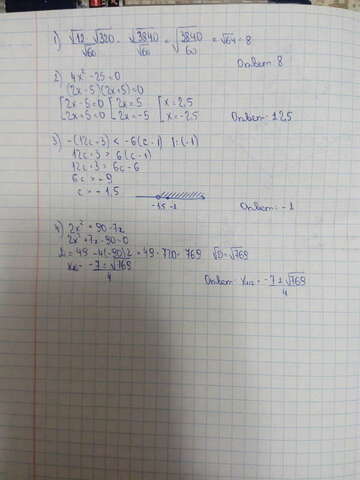 1) √12 · √320 / √60 = √3840 / √60 = √(3840/60) = √64 = 8
Ответ: 8
2) 4x² - 25 = 0
(2x - 5)(2x + 5) = 0
[2x - 5 = 0 [2x = 5 [x = 2,5
2x + 5 = 0 2x = -5 x = -2,5
Ответ:
3) -(12c + 3) < -6(c - 1) |:(-1)
12c + 3 > 6(c - 1)
12c + 3 > 6c - 6
6c > -9
c > -1,5
-1,5 -1
Ответ: -1
4) 2x² = 90 - 7x
2x² + 7x - 90 = 0
D = 49 - 4(-90)2 = 49 + 720 = 769 √D = √769
x₁,₂ = (-7 ± √769) / 4
Ответ: x₁,₂ = (-7 ± √769) / 4